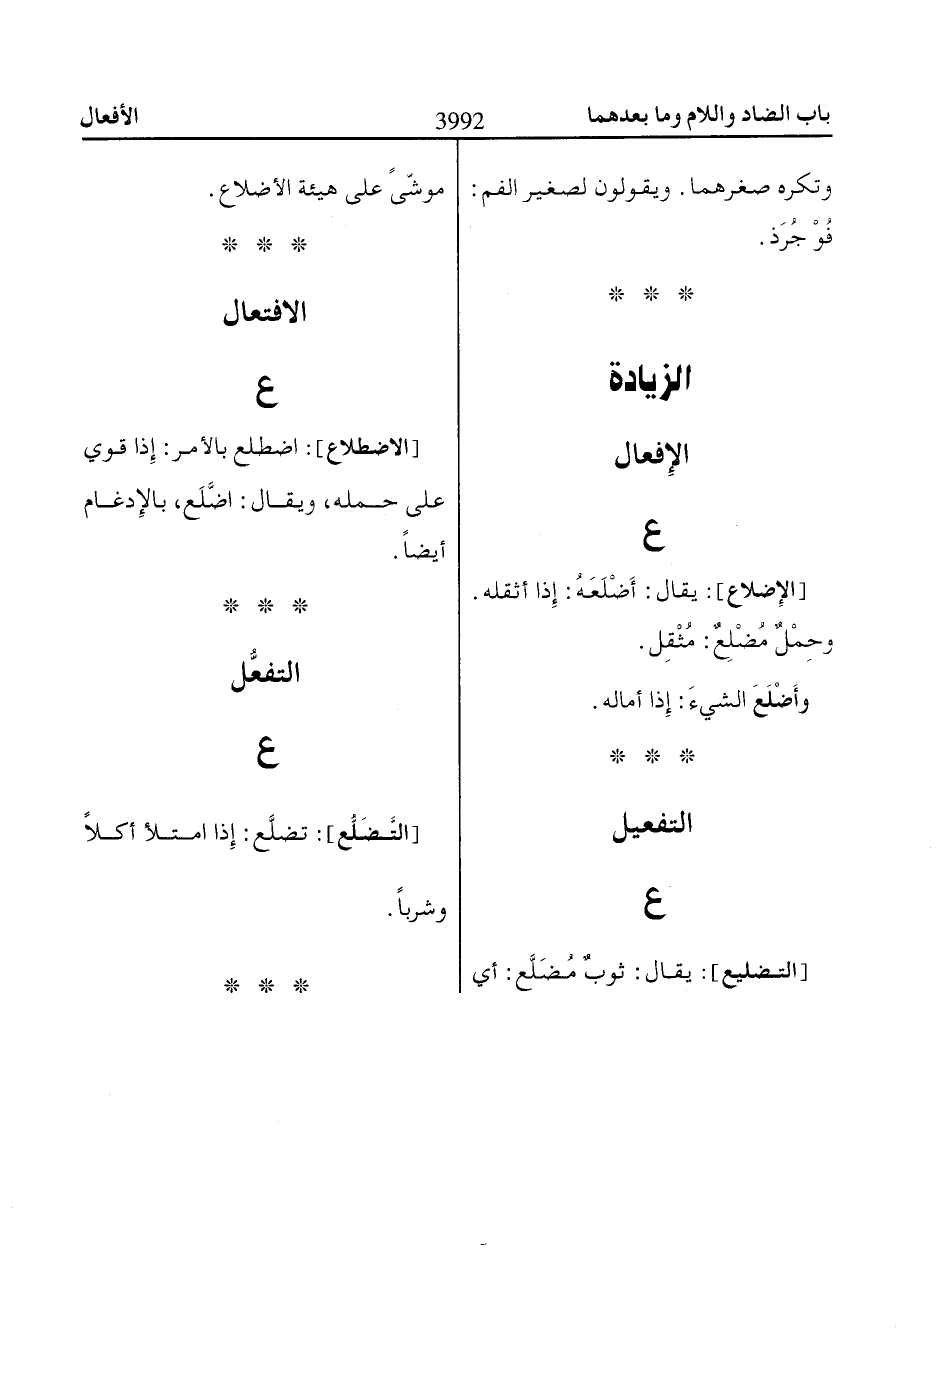 باب الضاد واللام وما بعدهما
3992
الأفعال
وتكره صغرهما. ويقولون لصغير الفم:
فُوْ جُرَذ.
* * *
الزيادة
الإفعال
ع
[الإضلاع]: يقال: أَضْلَعَهُ: إذا أثقله.
وحِمْلٌ مُضْلِعٌ: مُثْقِل.
وأَضْلَعَ الشيءَ: إذا أماله.
* * *
التفعيل
ع
[التضليع]: يقال: ثوبٌ مُضَلَّع: أي
موشّىً على هيئة الأضلاع.
* * *
الافتعال
ع
[الاضطلاع]: اضطلع بالأمر: إذا قوي
على حمله، ويقال: اضَّلَع، بالإدغام
أيضاً.
* * *
التفعُّل
ع
[التَّضَلُّع]: تضلَّع: إذا امتلأ أكلاً
وشرباً.
* * *